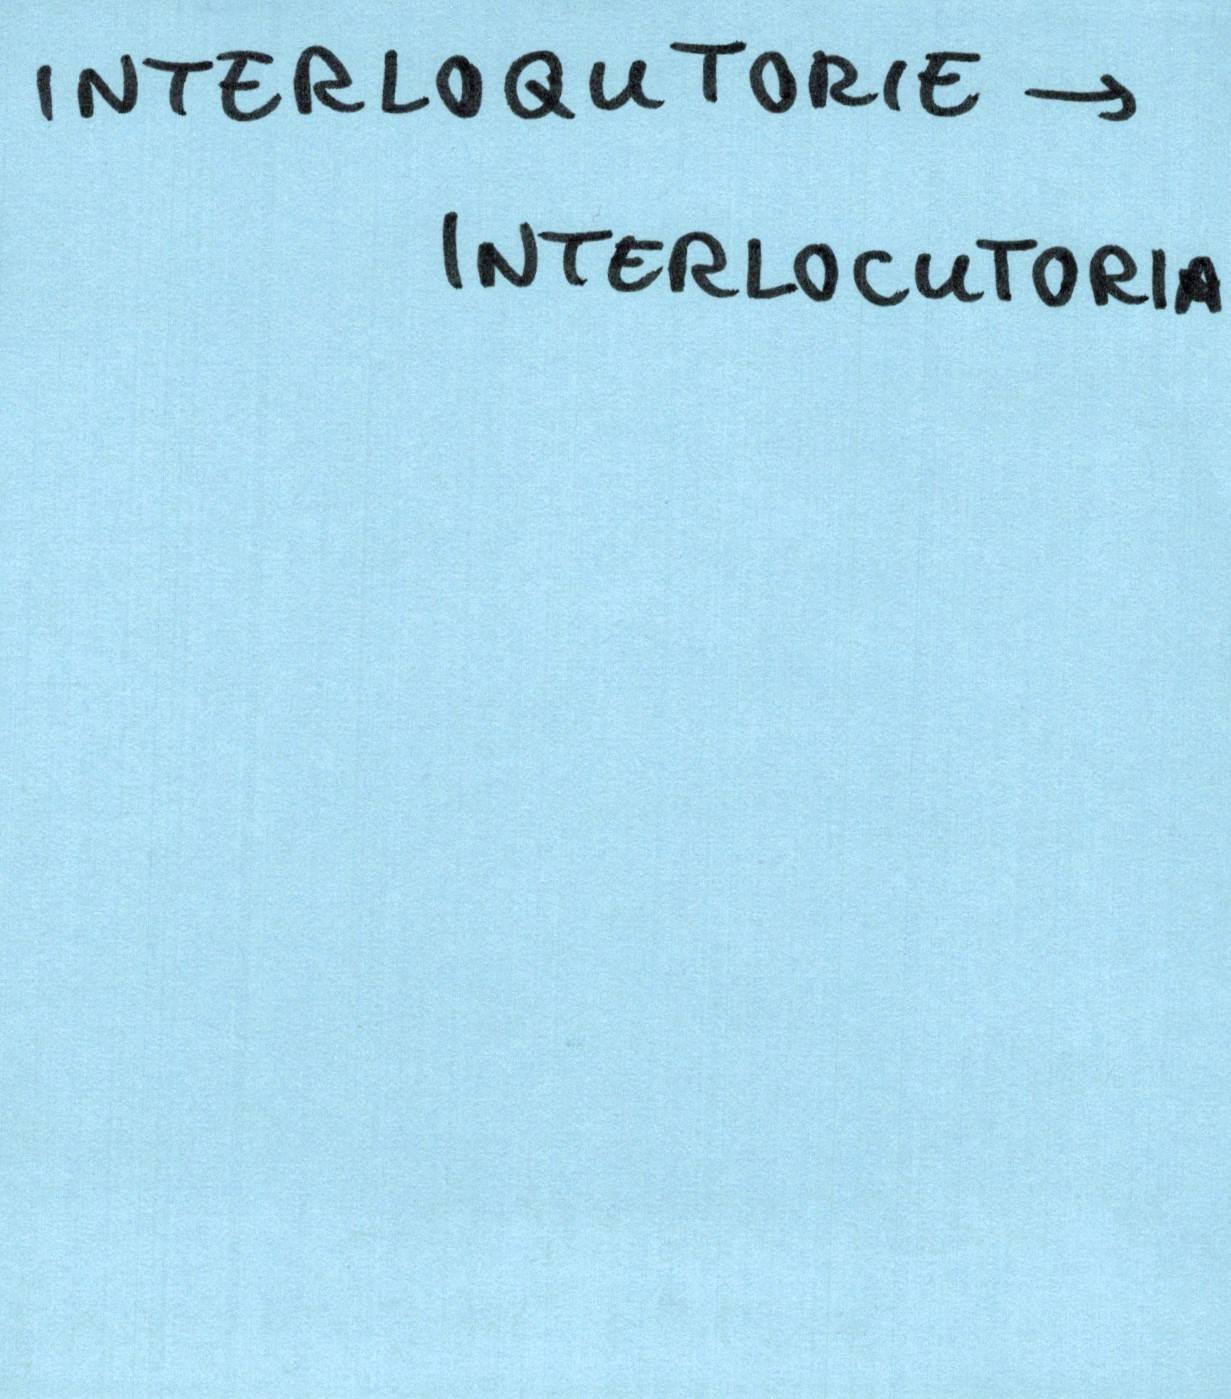 INTERLOQUTORIE →
INTERLOCUTORIA